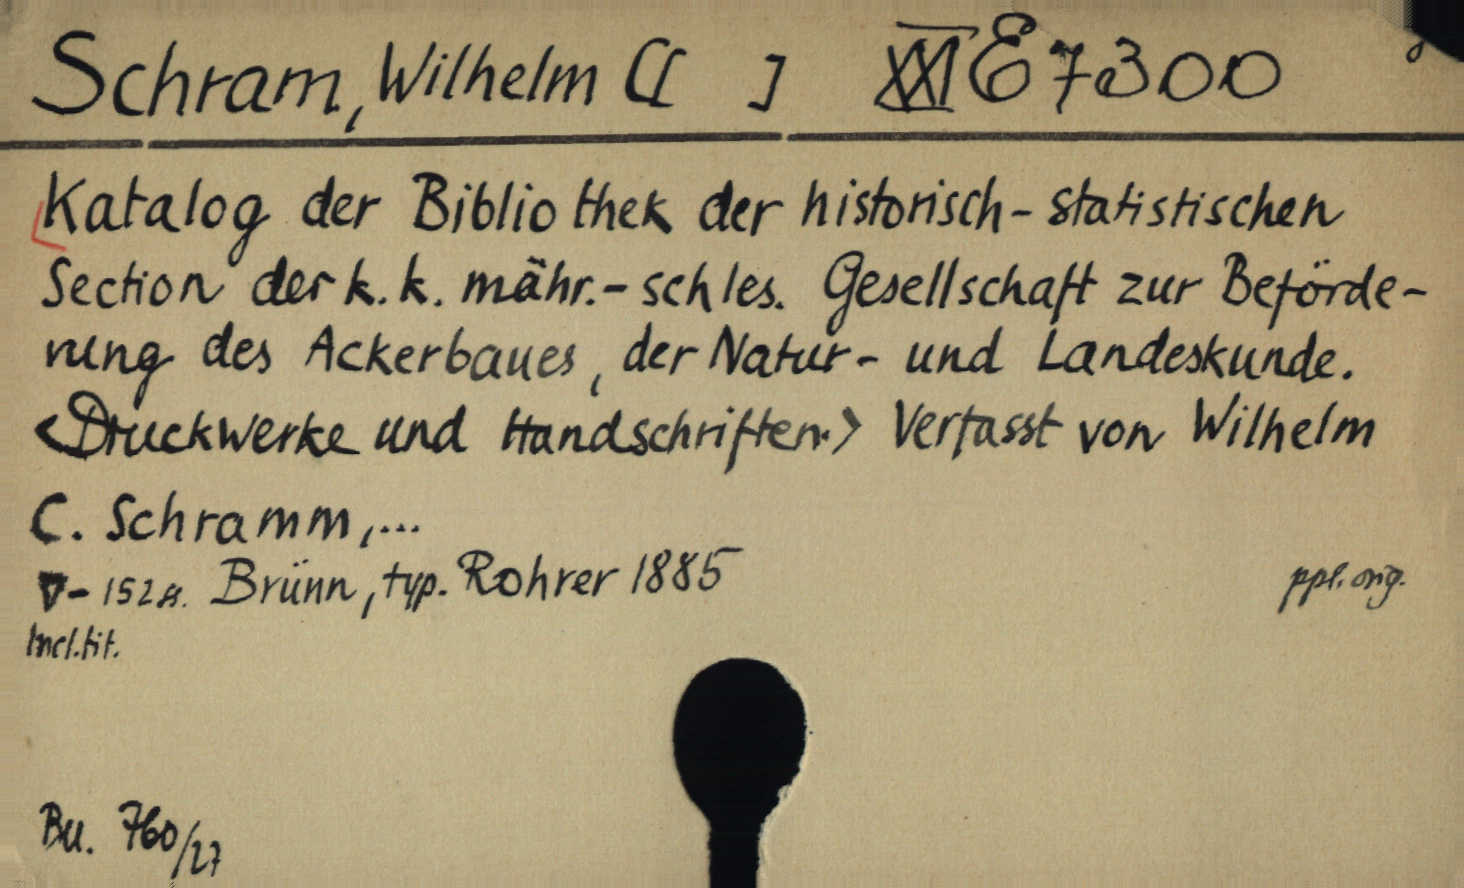 Schram, Wilhelm C[ ] XXI E 7300
Katalog der Bibliothek der historisch-statistischen
Section der k. k. mähr.-schles. Gesellschaft zur Beförde-
rung des Ackerbaues, der Natur- und Landeskunde.
<Druckwerke und Handschriften.> Verfasst von Wilhelm
C. Schramm,...
V- 152 s. Brünn, typ. Rohrer 1885
ppl. orig.
Incl. tit.
Bu. 760/27